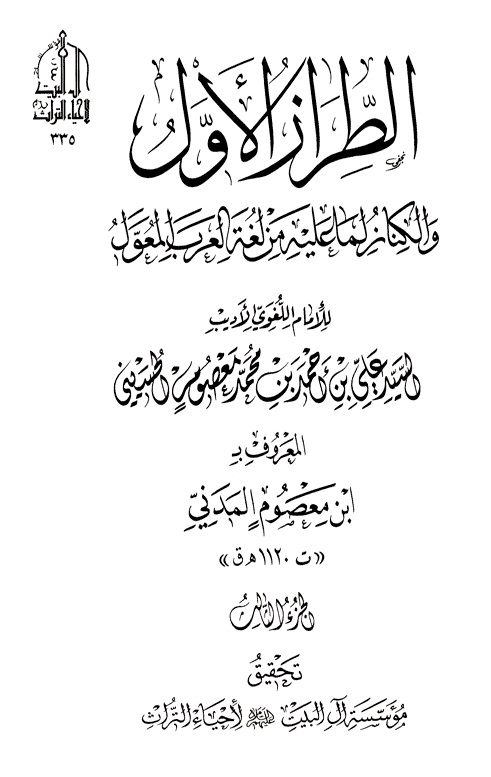 آل البيت
لإحياء التراث
٣٣٥
الطِّرَازُ الأَوَّلُ
وَالكِنَازُ لِمَا عَلَيْهِ مِنْ لُغَةِ العَرَبِ المُعَوَّلُ
للإمَامِ اللُّغَوِيِّ الأَدِيبِ
السَّيِّدِ عَلِيِّ بْنِ أَحْمَدَ بْنِ مُحَمَّدٍ مَعْصُومٍ الحُسَيْنِيِّ
المَعْرُوفِ بـ
ابْنِ مَعْصُومٍ المَدَنِيِّ
«ت ١١٢٠ ه‍ ق»
الجُزْءُ الثَّالِثُ
تَحْقِيقُ
مُؤَسَّسَةِ آلِ البَيْتِ لإِحْيَاءِ التُّرَاثِ